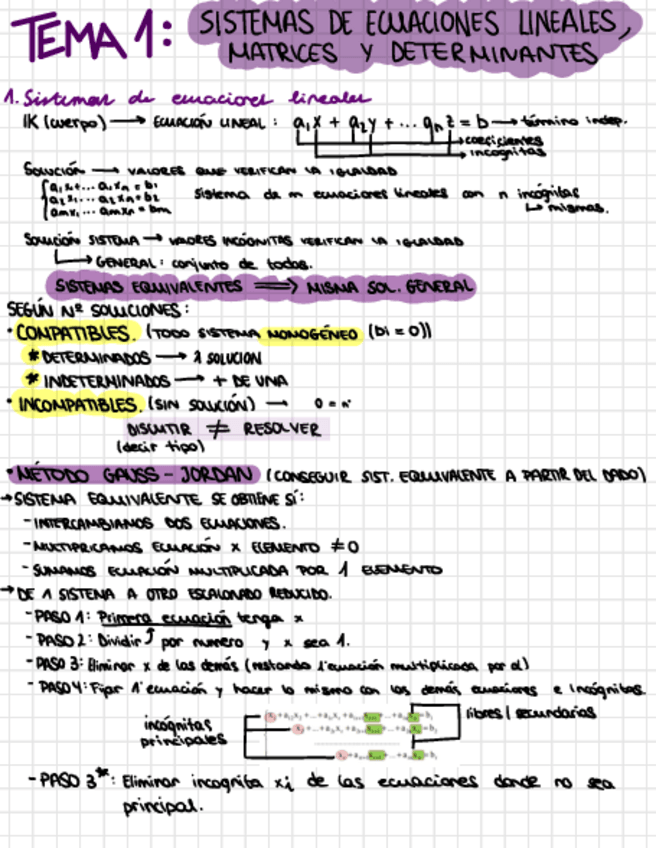 TEMA 1: SISTEMAS DE ECUACIONES LINEALES,
MATRICES Y DETERMINANTES
1. Sistemas de ecuaciones lineales
IK (cuerpo) → ECUACIÓN LINEAL: a₁x + a₂y + ... aₙz = b → término indep.
→ coeficientes
→ incognitas
SOLUCIÓN → VALORES QUE VERIFICAN LA IGUALDAD
a₁x₁+... a₁xₙ = b₁
a₂x₁... a₂xₙ = b₂
amx₁... amxₙ = bm
Sistema de m ecuaciones lineales con n incógnitas
↳ mismas.
SOLUCIÓN SISTEMA → VALORES INCÓGNITAS VERIFICAN LA IGUALDAD
↳ GENERAL: conjunto de todos.
SISTEMAS EQUIVALENTES ⟹ MISMA SOL. GENERAL
SEGÚN Nº SOLUCIONES:
· COMPATIBLES. (TODO SISTEMA HOMOGÉNEO (bi = 0))
* DETERMINADOS → 1 SOLUCIÓN
* INDETERMINADOS → + DE UNA
· INCOMPATIBLES. (SIN SOLUCIÓN) → 0 = n
DISCUTIR ≠ RESOLVER
(decir tipo)
· MÉTODO GAUSS - JORDAN (CONSEGUIR SIST. EQUIVALENTE A PARTIR DEL DADO)
→ SISTEMA EQUIVALENTE SE OBTIENE SÍ:
- INTERCAMBIAMOS DOS ECUACIONES.
- MULTIPRICAMOS ECUACIÓN x ELEMENTO ≠ 0
- SUMAMOS ECUACIÓN MULTIPLICADA POR 1 ELEMENTO
→ DE 1 SISTEMA A OTRO ESCALONADO REDUCIDO.
- PASO 1: Primera ecuación tenga x
- PASO 2: Dividir ⤴ por numero y x sea 1.
- PASO 3: Eliminar x de las demás (restando 1ª ecuación multiplicada por α)
- PASO 4: Fijar 1ª ecuación y hacer lo mismo con las demás ecuaciones e incógnitas.
incógnitas
principales
libres / secundarias
- PASO 3*: Eliminar incognita xᵢ de las ecuaciones donde no sea
principal.